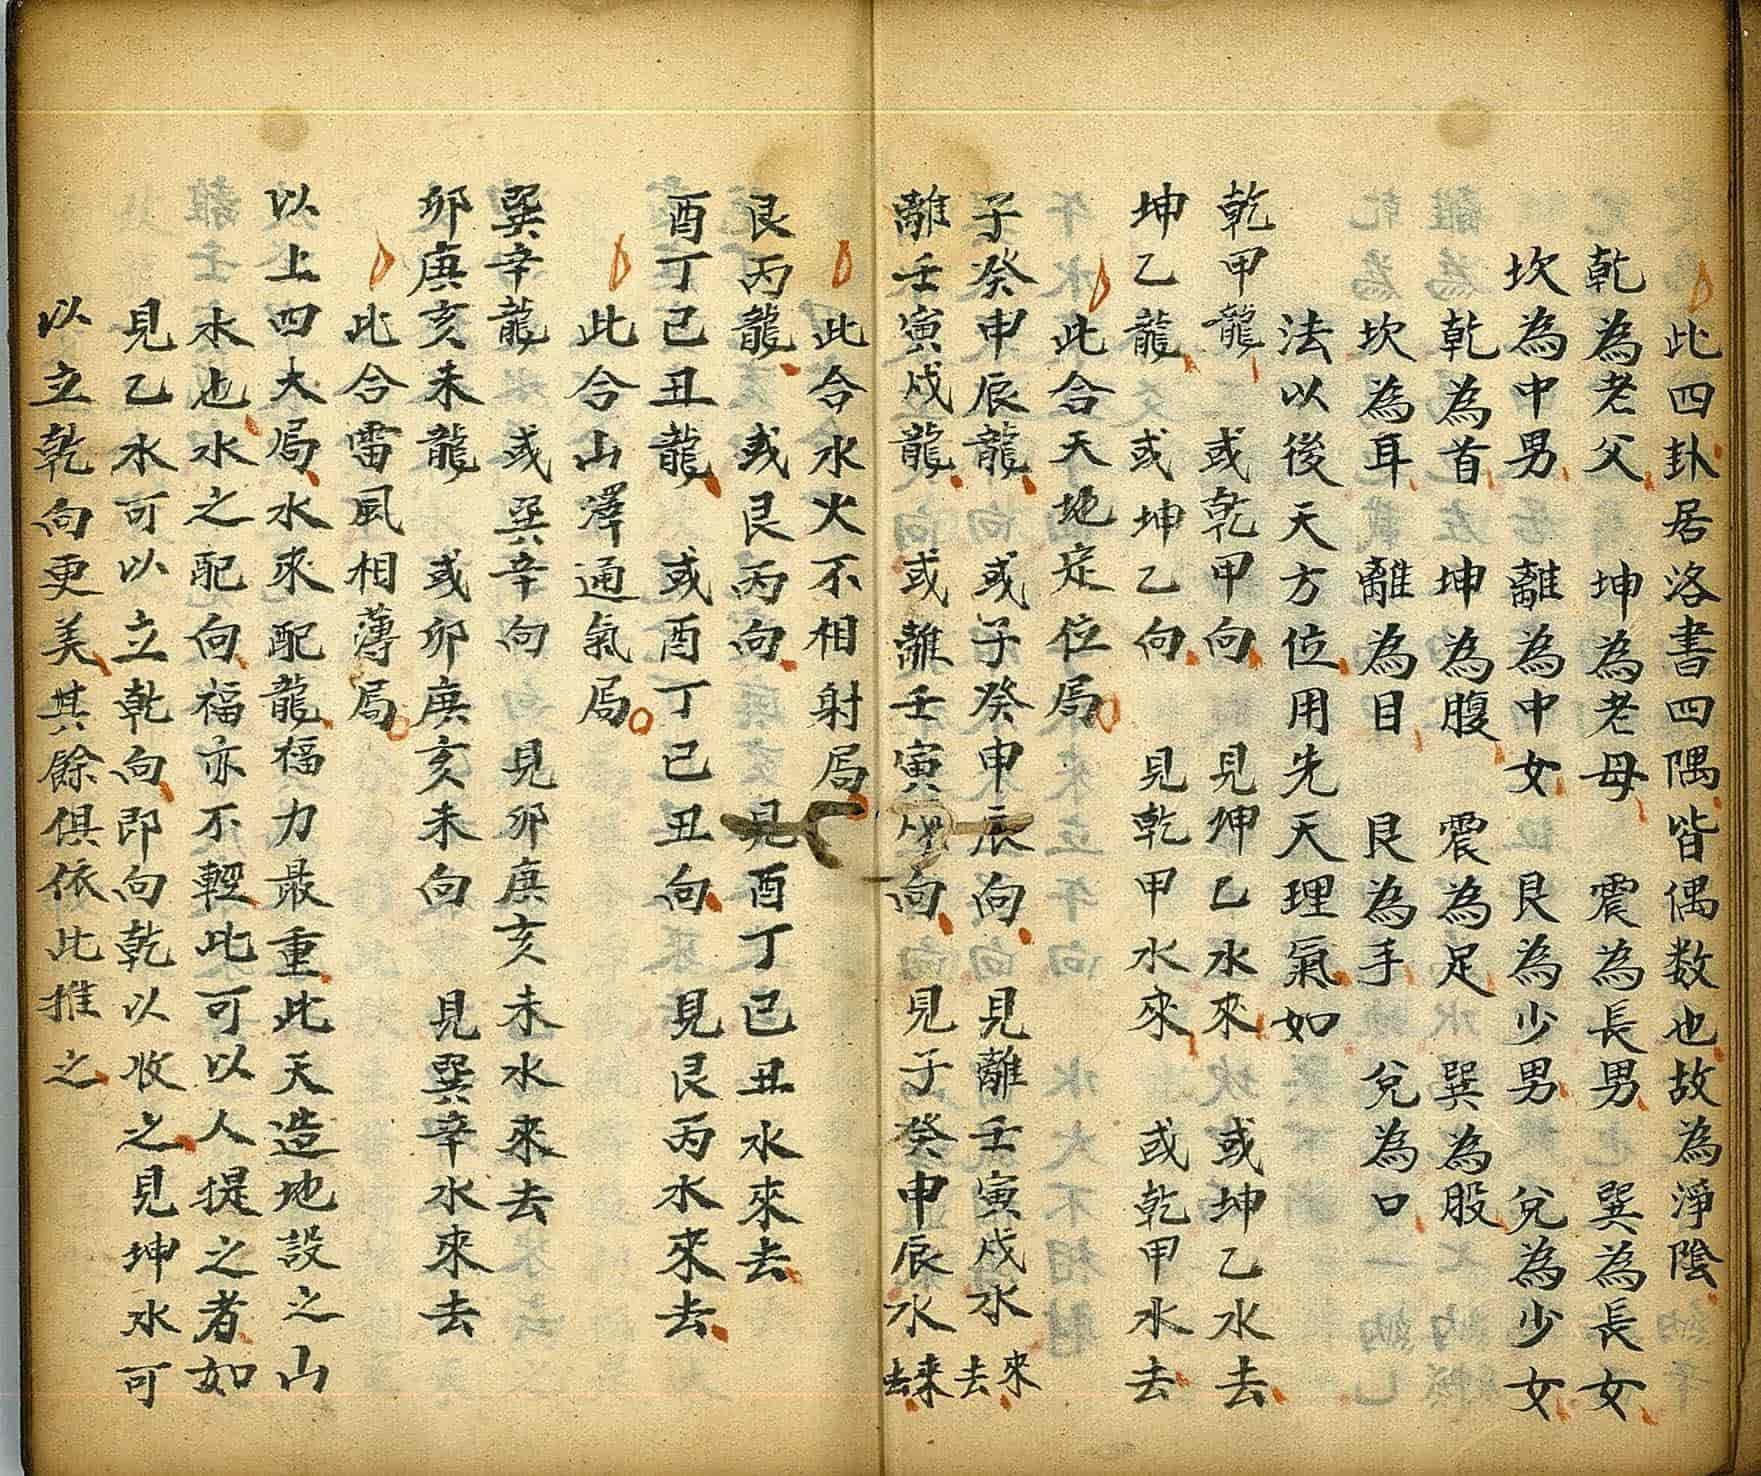 此四卦居洛書四隅皆偶数也故為淨陰
乾為老父　坤為老母　震為長男　巽為長女
坎為中男　離為中女　艮為少男　兌為少女
乾為首　坤為腹　震為足　巽為股
坎為耳　離為目　艮為手　兌為口
法以後天方位用先天理氣如
乾甲龍　或乾甲向　見坤乙水來　或坤乙水去
坤乙龍　或坤乙向　見乾甲水來　或乾甲水去
此合天地定位局
子癸申辰龍　或子癸申辰向　見離壬寅戌水來去
離壬寅戌龍　或離壬寅戌向　見子癸申辰水来去
此合水火不相射局
艮丙龍　或艮丙向　見酉丁己丑水來去
酉丁己丑龍　或酉丁己丑向　見艮丙水來去
此合山澤通氣局
巽辛龍　或巽辛向　見卯庚亥未水來去
卯庚亥未龍　或卯庚亥未向　見巽辛水來去
此合雷風相薄局
以上四大局水來配龍福力最重此天造地設之山
水也水之配向福亦不輕此可以人提之者如
見乙水可以立乾向即向乾以收之見坤水可
以立乾向更美其餘俱依此推之